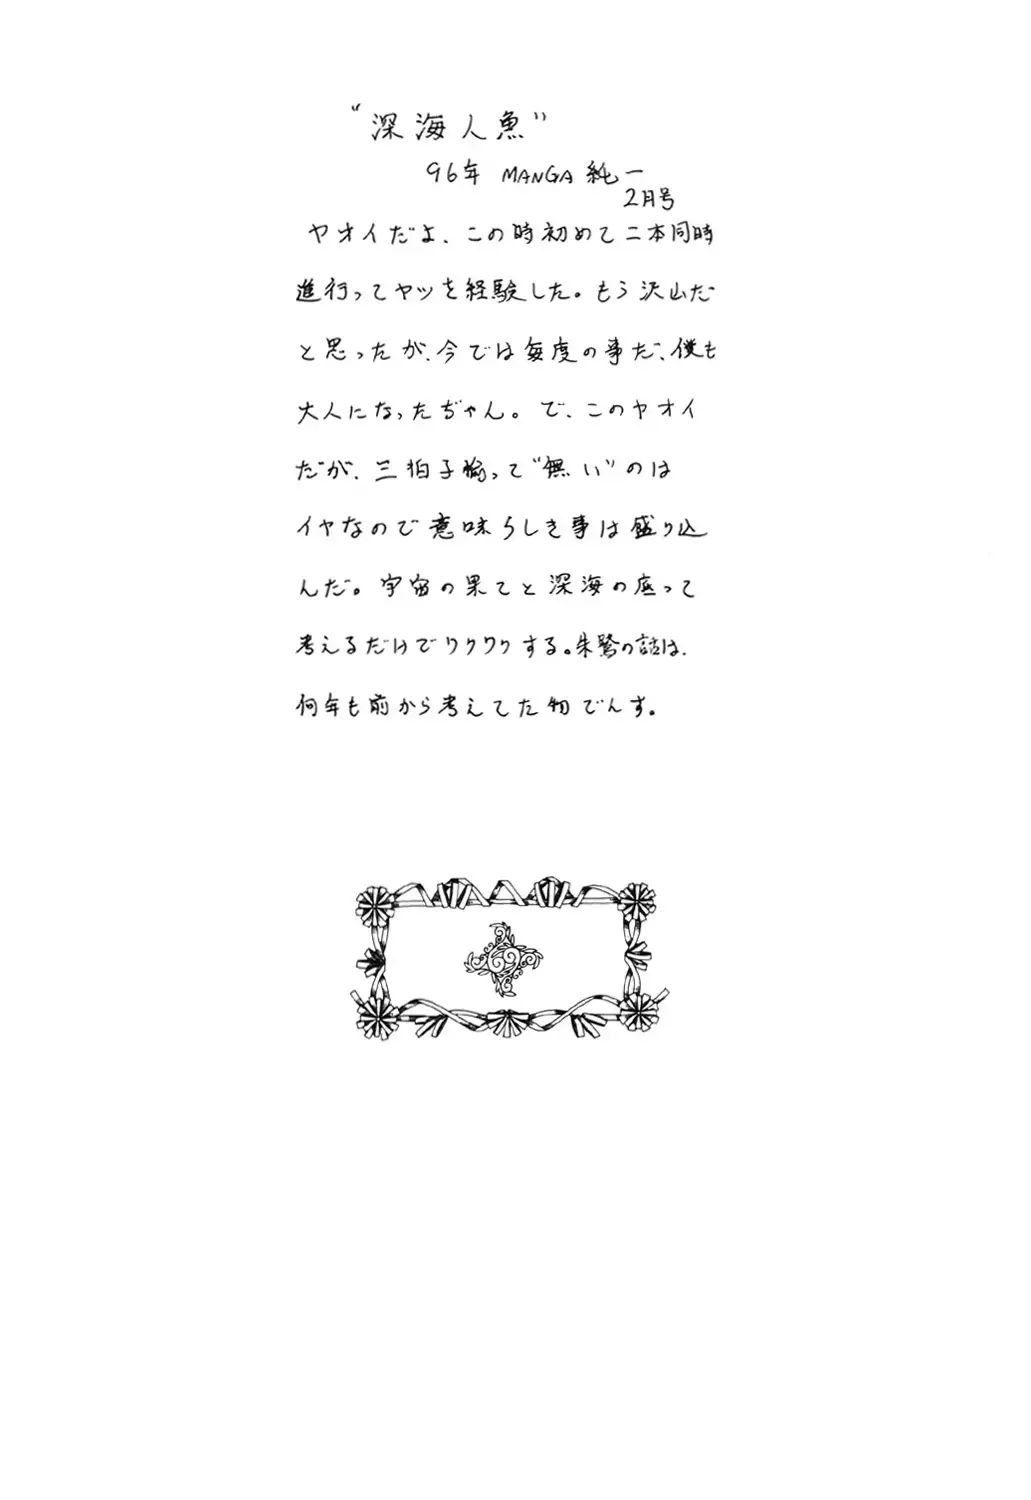 “深海人魚”
96年 MANGA 純一
2月号
ヤオイだよ、この時初めて二本同時
進行ってヤツを経験した。もう沢山だ
と思ったが、今では毎度の事だ、僕も
大人になったぢゃん。で、このヤオイ
だが、三拍子揃って“無い”のは
イヤなので意味らしき事は盛り込
んだ。宇宙の果てと深海の底って
考えるだけでワクワクする。朱鷺の話は、
何年も前から考えてた物でんす。
69